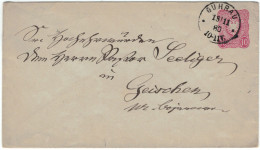 GUHRAU
18 11
85
10-11V.
10
Sr. Hochehrwürden
dem Herrn Pastor Seeliger
in
Geischen